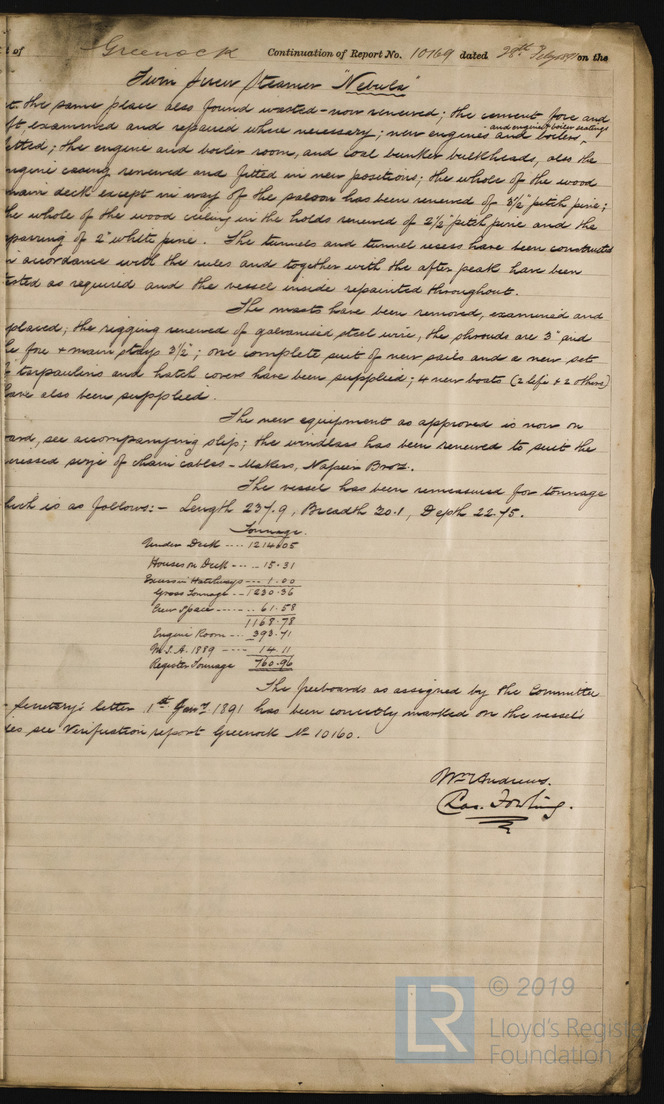 of Greenock Continuation of Report No. 10769 dated 28th Feby 1891 on the
Twin Screw Steamer "Nebula"
t. the same place also found wasted - now renewed; the cement fore and
ft, examined and repaired where necessary; new engines and boilers and engine & boiler seatings
itted; the engine and boiler room, and coal bunker bulkheads, also the
ngine casing renewed and fitted in new positions; the whole of the wood
main deck except in way of the saloon has been renewed of 3½" pitch pine;
he whole of the wood ceiling in the holds renewed of 2½" pitch pine and the
sparring of 2" white pine. The tunnels and tunnel recess have been constructed
n accordance with the rules and together with the after peak have been
ested as required and the vessel inside repainted throughout.
The masts have been removed, examined and
placed; the rigging renewed of galvanised steel wire, the shrouds are 3" and
he fore & main stays 3½"; one complete suit of new sails and a new set
f tarpaulins and hatch covers have been supplied; 4 new boats (2 life & 2 others)
have also been supplied.
The new equipment as approved is now on
oard, see accompanying slip; the windlass has been renewed to suit the
creased size of chain cables - Makers, Napier Bros.
The vessel has been remeasured for tonnage
hich is as follows:- Length 237.9, Breadth 30.1, Depth 22.75.
Tonnage.
Under Deck ---- 1214.05
Houses on Deck ---- 15.31
Excess in Hatchways --- 1.00
Gross Tonnage -- 1230.36
Crew Space ------ 61.58
1168.78
Engine Room --- 393.71
M.S.A. 1889 ---- 14.11
Register Tonnage 760.96
The freeboards as assigned by the Committee
Secretary's letter 1st Jany 1891 has been correctly marked on the vessel's
des see Verification report Greenock No 10160.
Wm Andrews.
Chas.
© 2019
LR
Lloyd's Registe
Foundation